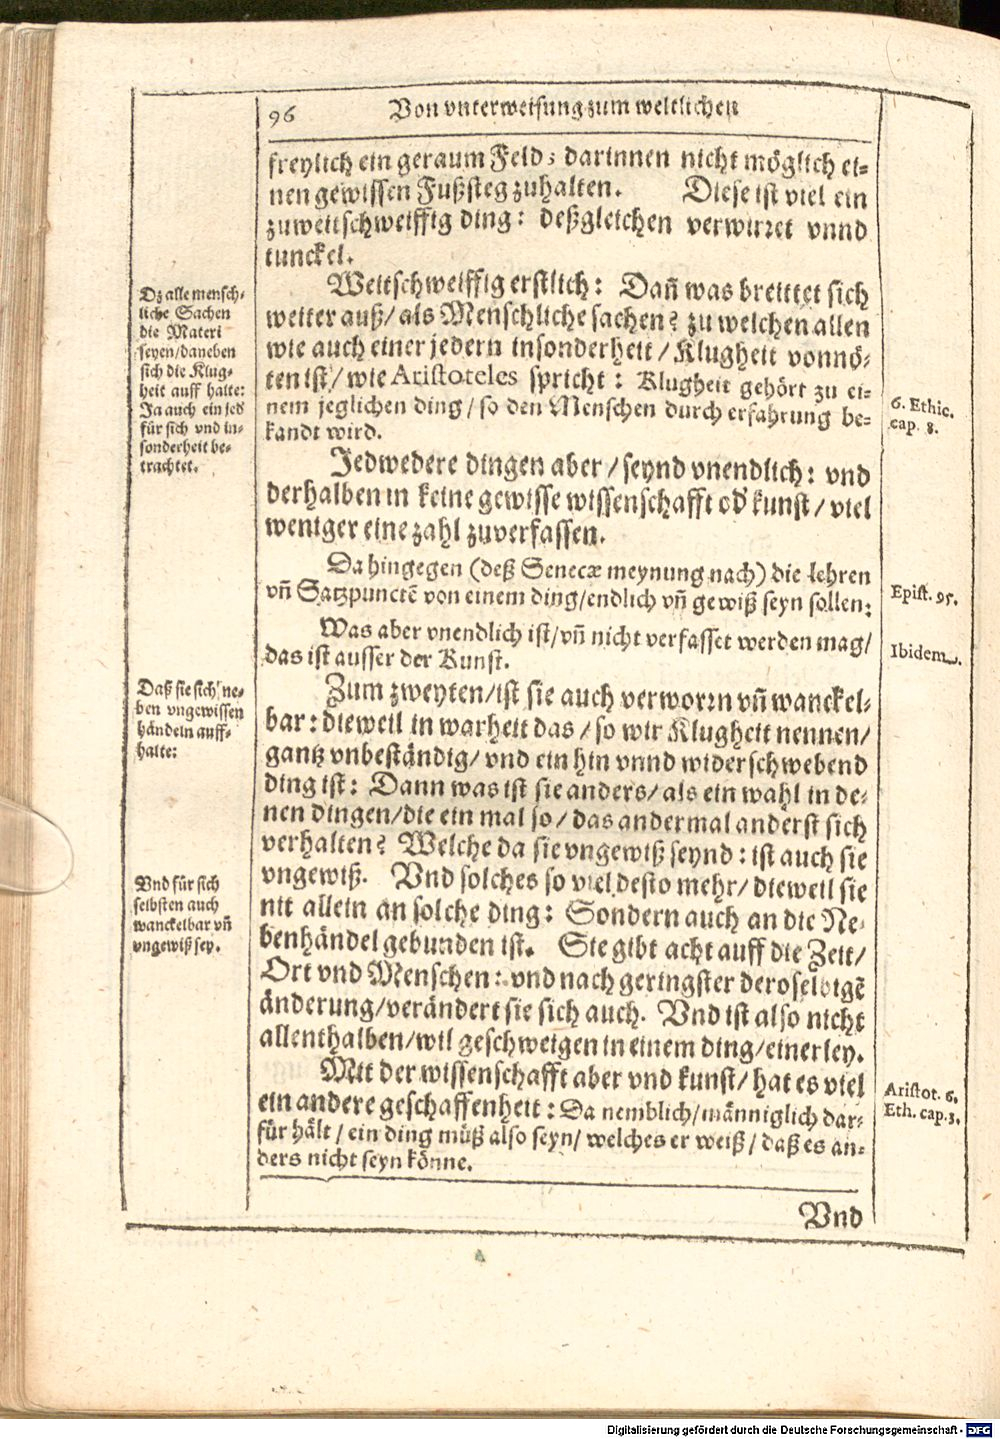 96 Von vnterweisung zum weltlichen
freylich ein geraum Feld; darinnen nicht möglich ei-
nen gewissen Fußsteg zuhalten. Diese ist viel ein
zuweitschweiffig ding: deßgleichen verwirret vnnd
tunckel.
Dz alle mensch-
liche Sachen
die Materi
seyen/daneben
sich die Klug-
heit auff halte:
Ja auch ein jed
für sich vnd in-
sonderheit be-
trachtet.
Weitschweiffig erstlich: Dañ was breittet sich
weiter auß/als Menschliche sachen? zu welchen allen
wie auch einer jedern insonderheit/Klugheit vonnö-
ten ist/wie Aristoteles spricht: Klugheit gehört zu ei-
nem jeglichen ding/so den Menschen durch erfahrung be-
kandt wird.
6. Ethic.
cap. 8.
Jedwedere dingen aber/seynd vnendlich: vnd
derhalben in keine gewisse wissenschafft od' kunst/viel
weniger eine zahl zuverfassen.
Da hingegen (deß Senecæ meynung nach) die lehren
vñ Satzpunctē von einem ding/endlich vñ gewiß seyn sollen:
Epist. 95.
Was aber vnendlich ist/vñ nicht verfasset werden mag/
das ist ausser der Kunst.
Ibidem.
Daß sie sich ne-
ben vngewissen
händeln auff-
halte:
Zum zweyten/ist sie auch verworrn vñ wanckel-
bar: dieweil in warheit das/so wir Klugheit nennen/
gantz vnbeständig/vnd ein hin vnnd widerschwebend
ding ist: Dann was ist sie anders/als ein wahl in de-
nen dingen/die ein mal so/das andermal anderst sich
verhalten? Welche da sie vngewiß seynd: ist auch sie
vngewiß. Vnd solches so viel desto mehr/dieweil sie
nit allein an solche ding: Sondern auch an die Ne-
benhändel gebunden ist. Sie gibt acht auff die Zeit/
Ort vnd Menschen: vnd nach geringster deroselbigē
änderung/verändert sie sich auch. Vnd ist also nicht
allenthalben/wil geschweigen in einem ding/einerley.
Vnd für sich
selbsten auch
wanckelbar vñ
vngewiß sey.
Mit der wissenschafft aber vnd kunst/hat es viel
ein andere geschaffenheit: Da nemblich/männiglich dar-
für hält/ein ding müß also seyn/welches er weiß/daß es an-
ders nicht seyn könne.
Aristot. 6.
Eth. cap. 3.
Vnd
Digitalisierung gefördert durch die Deutsche Forschungsgemeinschaft - DFG